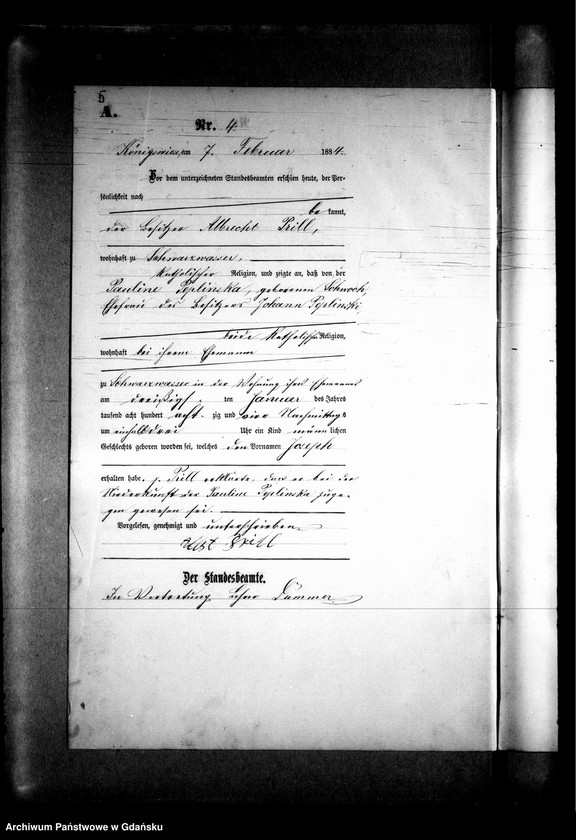 5
A.
Nr. 4.
Königswiese, am 7. Februar 1884.
Vor dem unterzeichneten Standesbeamten erschien heute, der Per-
sönlichkeit nach
be kannt,
der Besitzer Albrecht Prill,
wohnhaft zu Schwarzwasser,
katholischer Religion, und zeigte an, daß von der
Pauline Peplinska, geborenen Schwoch,
Ehefrau des Besitzers Johann Peplinski,
beide katholischer Religion,
wohnhaft bei ihrem Ehemanne
zu Schwarzwasser in der Wohnung ihres Ehemanns
am dreißigsten Januar des Jahres
tausend acht hundert achtzig und vier Nachmittags
um einhalbdrei Uhr ein Kind männlichen
Geschlechts geboren worden sei, welches den Vornamen Joseph
erhalten habe. p. Prill erklärte, daß er bei der
Niederkunft der Pauline Peplinska zuge-
gen gewesen sei.
Vorgelesen, genehmigt und unterschrieben.
Prill
Der Standesbeamte.
In Vertretung Dummer
Archiwum Państwowe w Gdańsku